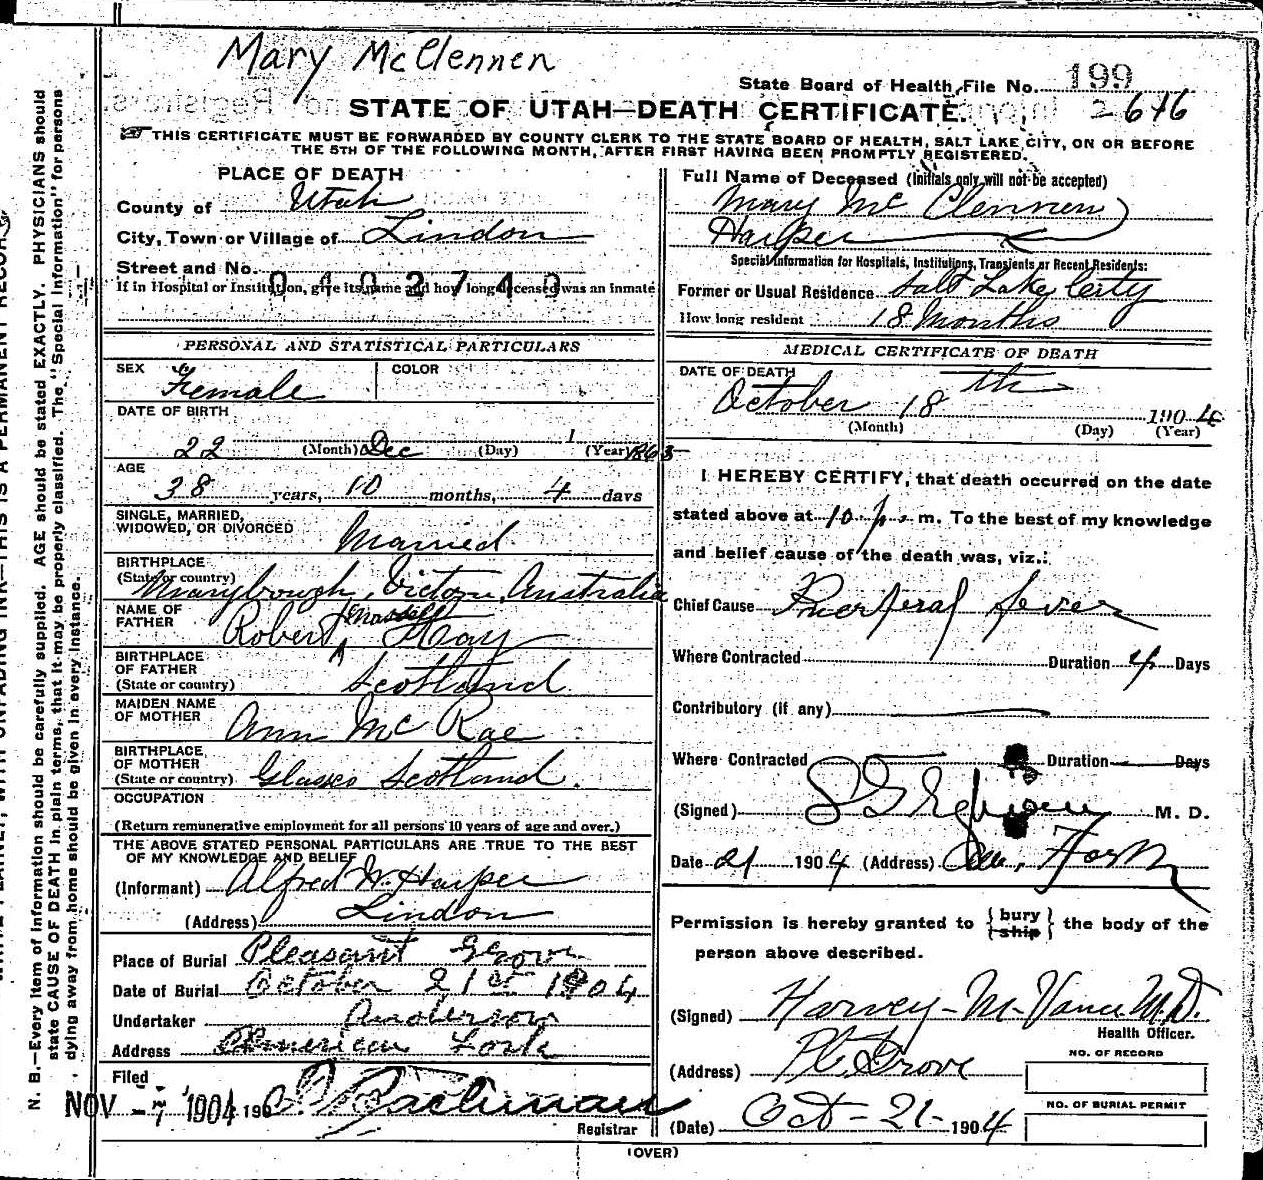 Mary McClennen
State Board of Health File No. 199
2676
STATE OF UTAH—DEATH CERTIFICATE.
THIS CERTIFICATE MUST BE FORWARDED BY COUNTY CLERK TO THE STATE BOARD OF HEALTH, SALT LAKE CITY, ON OR BEFORE
THE 5TH OF THE FOLLOWING MONTH, AFTER FIRST HAVING BEEN PROMPTLY REGISTERED.
PLACE OF DEATH
County of Utah
City, Town or Village of Lindon
Street and No.
0402749
If in Hospital or Institution, give its name and how long deceased was an inmate
PERSONAL AND STATISTICAL PARTICULARS
SEX Female COLOR
DATE OF BIRTH
22 (Month) Dec (Day) 1 (Year) 1865
AGE
38 years, 10 months, 4 days
SINGLE, MARRIED,
WIDOWED, OR DIVORCED Married
BIRTHPLACE
(State or country) Marybough, Victoria, Australia
NAME OF
FATHER Robert Gray
BIRTHPLACE
OF FATHER
(State or country) Scotland
MAIDEN NAME
OF MOTHER Ann McRae
BIRTHPLACE
OF MOTHER
(State or country) Glasgo Scotland.
OCCUPATION
(Return remunerative employment for all persons 10 years of age and over.)
THE ABOVE STATED PERSONAL PARTICULARS ARE TRUE TO THE BEST
OF MY KNOWLEDGE AND BELIEF
(Informant) Alfred W. Harper
(Address) Lindon
Place of Burial Pleasant Grove
Date of Burial October 21st 1904
Undertaker Anderson
Address American Fork
Filed
NOV -7 1904 190
Registrar
Full Name of Deceased (Initials only will not be accepted)
Mary Mc Clennen
Harper
Special Information for Hospitals, Institutions, Transients or Recent Residents:
Former or Usual Residence Salt Lake City
How long resident 18 Months
MEDICAL CERTIFICATE OF DEATH
DATE OF DEATH
October 18th 1904
(Month) (Day) (Year)
I HEREBY CERTIFY, that death occurred on the date
stated above at 10 p. m. To the best of my knowledge
and belief cause of the death was, viz.:
Chief Cause Puerperal fever
Where Contracted Duration 4 Days
Contributory (if any)
Where Contracted Duration Days
(Signed) M. D.
Date 21 1904 (Address) Am. Fork
Permission is hereby granted to {bury
ship} the body of the
person above described.
(Signed) Harvey M. Vance M.D.
Health Officer.
(Address) Pl. Grove
NO. OF RECORD
NO. OF BURIAL PERMIT
(Date) Oct-21- 1904
(OVER)
N. B.—Every item of information should be carefully supplied. AGE should be stated EXACTLY. PHYSICIANS should
state CAUSE OF DEATH in plain terms, that it may be properly classified. The "Special Information" for persons
dying away from home should be given in every instance.
WITH UNFADING INK—THIS IS A PERMANENT RECORD